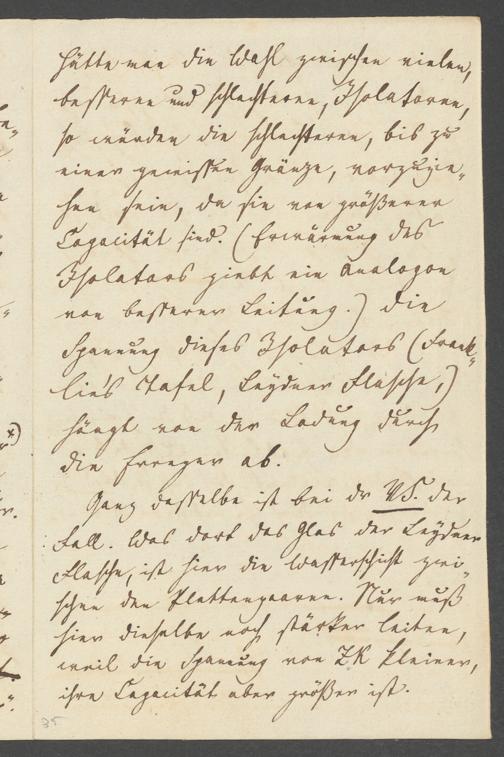 hätte man die Wahl zwischen vielen,
besseren und schlechteren, Isolatoren,
so würden die schlechteren, bis zu
einer gewissen Gränze, vorzuzie„
hen sein, da sie von größerer
Capacität sind. (Erwärmung des
Isolators giebt ein Analogon
von besserer Leitung.) Die
Spannung dieses Isolators (Frank„
lin's Tafel, Leydner Flasche,)
hängt von der Ladung durch
die Erreger ab.
Ganz dasselbe ist bei dr VS. der
Fall. Was dort das Glas der Leydner
Flasche, ist hier die Wasserschicht zwi„
schen den Plattenpaaren. Nur muß
hier dieselbe noch stärker leiten,
weil die Spannung von ZK kleiner,
ihre Capacität aber größer ist.
35